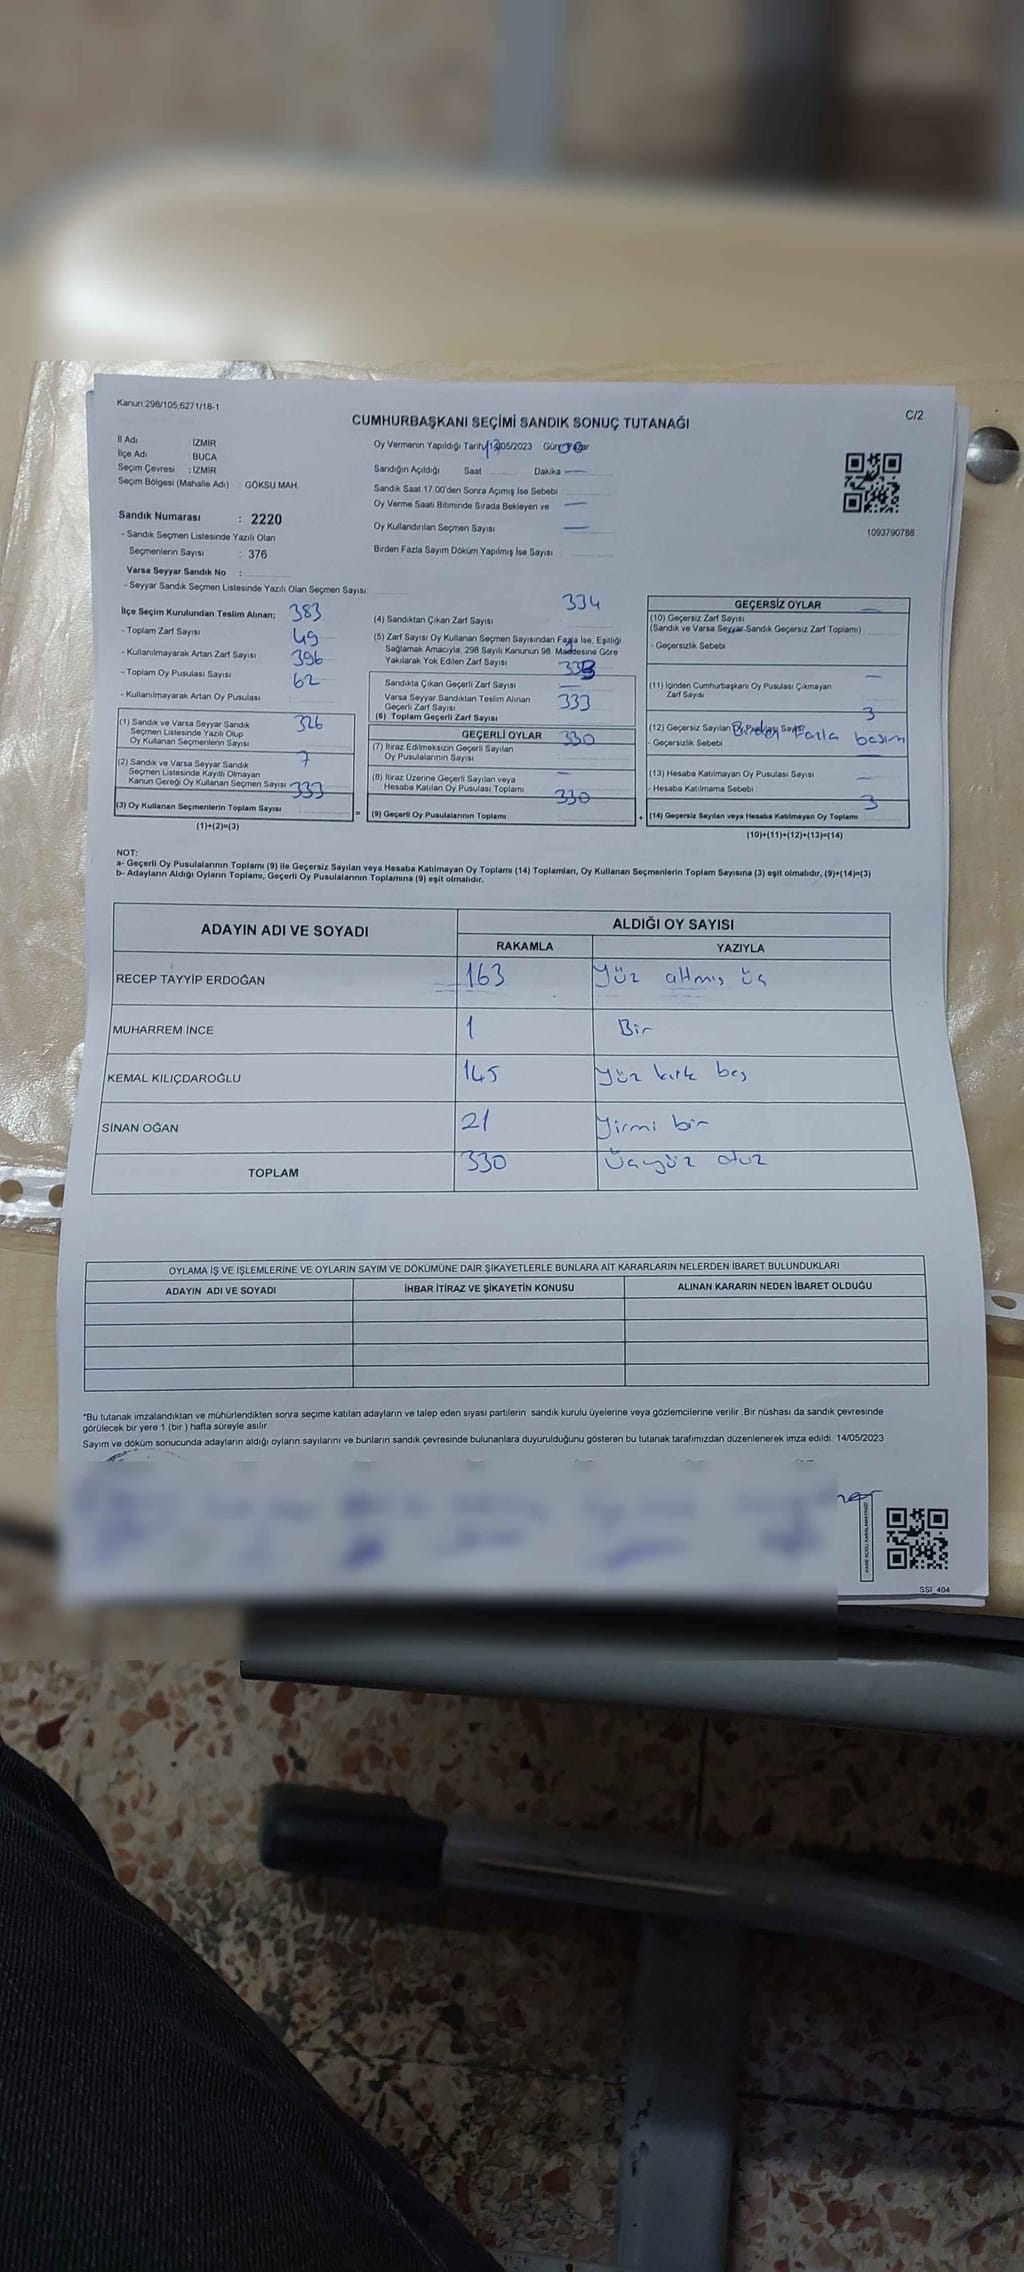 Kanun:298/105;6271/18-1
C/2
CUMHURBAŞKANI SEÇİMİ SANDIK SONUÇ TUTANAĞI
İl Adı : İZMİR
İlçe Adı : BUCA
Seçim Çevresi : İZMİR
Seçim Bölgesi (Mahalle Adı) : GÖKSU MAH.
Sandık Numarası : 2220
- Sandık Seçmen Listesinde Yazılı Olan
Seçmenlerin Sayısı : 376
Varsa Seyyar Sandık No :
- Seyyar Sandık Seçmen Listesinde Yazılı Olan Seçmen Sayısı:
Oy Vermenin Yapıldığı Tarih/ 05/2023
Sandığın Açıldığı Saat Dakika —
Sandık Saat 17.00'den Sonra Açımış İse Sebebi
Oy Verme Saati Bitiminde Sırada Bekleyen ve —
Oy Kullandırılan Seçmen Sayısı —
Birden Fazla Sayım Döküm Yapılmış İse Sayısı
1093790788
İlçe Seçim Kurulundan Teslim Alınan; 383
- Toplam Zarf Sayısı 49
- Kullanılmayarak Artan Zarf Sayısı 396
- Toplam Oy Pusulası Sayısı 62
- Kullanılmayarak Artan Oy Pusulası
(1) Sandık ve Varsa Seyyar Sandık 326
Seçmen Listesinde Yazılı Olup
Oy Kullanan Seçmenlerin Sayısı
(2) Sandık ve Varsa Seyyar Sandık 7
Seçmen Listesinde Kayıtlı Olmayan
Kanun Gereği Oy Kullanan Seçmen Sayısı 333
(3) Oy Kullanan Seçmenlerin Toplam Sayısı
(1)+(2)=(3)
334
(4) Sandıktan Çıkan Zarf Sayısı
(5) Zarf Sayısı Oy Kullanan Seçmen Sayısından Fazla İse, Eşitliği
Sağlamak Amacıyla, 298 Sayılı Kanunun 98. Maddesine Göre
Yakılarak Yok Edilen Zarf Sayısı 333
Sandıkta Çıkan Geçerli Zarf Sayısı —
Varsa Seyyar Sandıktan Teslim Alınan 333
Geçerli Zarf Sayısı
(6) Toplam Geçerli Zarf Sayısı
GEÇERLİ OYLAR 330
(7) İtiraz Edilmeksizin Geçerli Sayılan
Oy Pusulalarının Sayısı
(8) İtiraz Üzerine Geçerli Sayılan veya —
Hesaba Katılan Oy Pusulası Toplamı 330
(9) Geçerli Oy Pusulalarının Toplamı
GEÇERSİZ OYLAR —
(10) Geçersiz Zarf Sayısı
(Sandık ve Varsa Seyyar Sandık Geçersiz Zarf Toplamı)
- Geçersizlik Sebebi
(11) İçinden Cumhurbaşkanı Oy Pusulası Çıkmayan —
Zarf Sayısı
3
(12) Geçersiz Sayılan Oy Pusulası Sayısı
- Geçersizlik Sebebi Birden Fazla basım
(13) Hesaba Katılmayan Oy Pusulası Sayısı —
- Hesaba Katılmama Sebebi 3
(14) Geçersiz Sayılan veya Hesaba Katılmayan Oy Toplamı
(10)+(11)+(12)+(13)=(14)
NOT:
a- Geçerli Oy Pusulalarının Toplamı (9) ile Geçersiz Sayılan veya Hesaba Katılmayan Oy Toplamı (14) Toplamları, Oy Kullanan Seçmenlerin Toplam Sayısına (3) eşit olmalıdır, (9)+(14)=(3)
b- Adayların Aldığı Oyların Toplamı, Geçerli Oy Pusulalarının Toplamına (9) eşit olmalıdır.
ADAYIN ADI VE SOYADI ALDIĞI OY SAYISI
RAKAMLA YAZIYLA
RECEP TAYYİP ERDOĞAN 163 Yüz altmış üç
MUHARREM İNCE 1 Bir
KEMAL KILIÇDAROĞLU 145 Yüz kırk beş
SİNAN OĞAN 21 Yirmi bir
TOPLAM 330 Üçyüz otuz
OYLAMA İŞ VE İŞLEMLERİNE VE OYLARIN SAYIM VE DÖKÜMÜNE DAİR ŞİKAYETLERLE BUNLARA AİT KARARLARIN NELERDEN İBARET BULUNDUKLARI
ADAYIN ADI VE SOYADI İHBAR İTİRAZ VE ŞİKAYETİN KONUSU ALINAN KARARIN NEDEN İBARET OLDUĞU
*Bu tutanak imzalandıktan ve mühürlendikten sonra seçime katılan adayların ve talep eden siyasi partilerin sandık kurulu üyelerine veya gözlemcilerine verilir .Bir nüshası da sandık çevresinde
görülecek bir yere 1 (bir ) hafta süreyle asılır.
Sayım ve döküm sonucunda adayların aldığı oyların sayılarını ve bunların sandık çevresinde bulunanlara duyurulduğunu gösteren bu tutanak tarafımızdan düzenlenerek imza edildi. 14/05/2023
KARE KODU KARALAMAYINIZ!
SSI_404